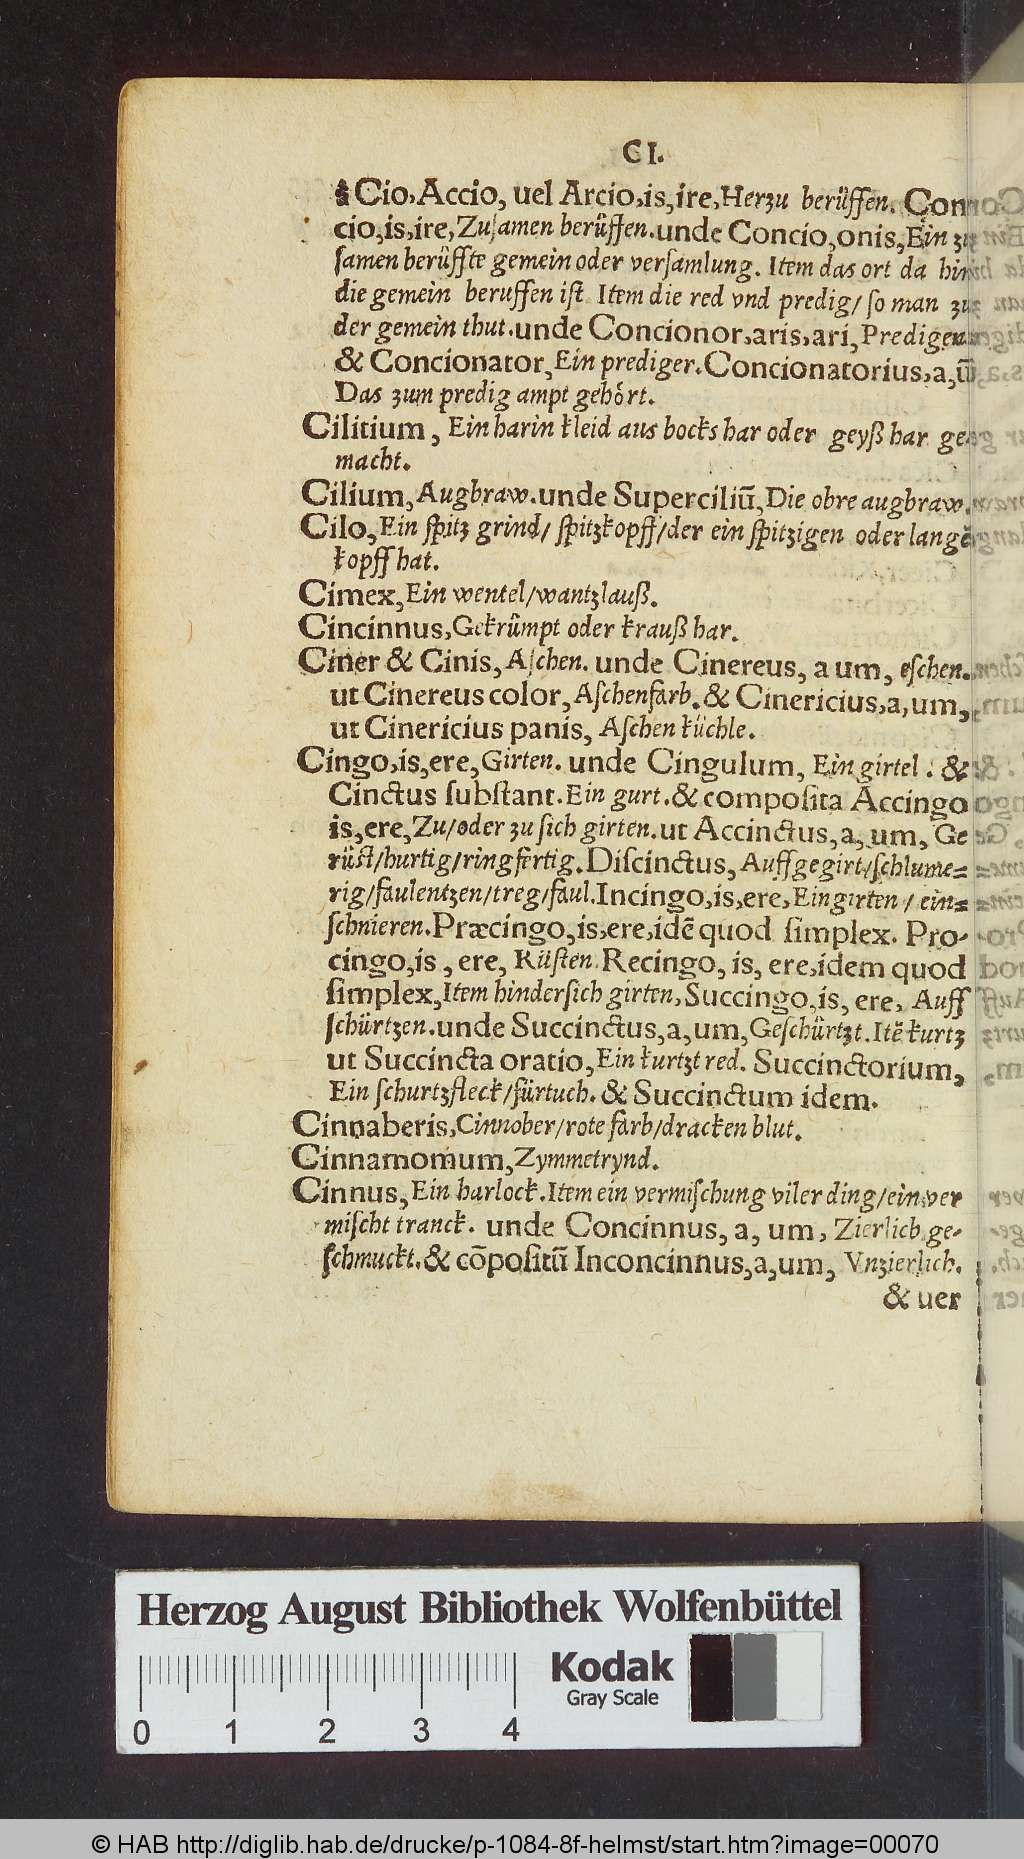 CI.
Cio, Accio, uel Arcio, is, ire, Herzu berüffen. Con
cio, is, ire, Zusamen berüffen. unde Concio, onis, Ein zu
samen berüffte gemein oder versamlung. Item das ort da hin
die gemein beruffen ist Item die red vnd predig/ so man zu
der gemein thut. unde Concionor, aris, ari, Predigen
& Concionator, Ein prediger. Concionatorius, a, ū
Das zum predig ampt gehört.
Cilitium, Ein harin kleid aus bocks har oder geyß har ge-
macht.
Cilium, Augbraw. unde Superciliū, Die obre augbraw.
Cilo, Ein spitz grind/ spitzkopff/ der ein spitzigen oder langē
kopff hat.
Cimex, Ein wentel/wantzlauß.
Cincinnus, Gekrümpt oder krauß har.
Ciner & Cinis, Aschen. unde Cinereus, a um, eschen.
ut Cinereus color, Aschenfarb. & Cinericius, a, um,
ut Cinericius panis, Aschen küchle.
Cingo, is, ere, Girten. unde Cingulum, Ein girtel. &
Cinctus substant. Ein gurt. & composita Accingo
is, ere, Zu/oder zu sich girten. ut Accinctus, a, um, Ge
rüst/hurtig/ringfertig. Discinctus, Auffgegirt/schlume=
rig/faulentzen/treg/faul. Incingo, is, ere, Eingirten / ein=
schnieren. Præcingo, is, ere, idē quod simplex. Pro-
cingo, is, ere, Rüsten. Recingo, is, ere, idem quod
simplex, Item hindersich girten, Succingo, is, ere, Auff
schürtzen. unde Succinctus, a, um, Geschürtzt. Itē kurtz
ut Succincta oratio, Ein kurtzt red. Succinctorium,
Ein schurtzfleck/fürtuch. & Succinctum idem.
Cinnaberis, Cinnober/rote farb/dracken blut.
Cinnamomum, Zymmetrynd.
Cinnus, Ein harlock. Item ein vermischung viler ding/ein ver
mischt tranck. unde Concinnus, a, um, Zierlich ge-
schmuckt. & cōpositū Inconcinnus, a, um, Vnzierlich.
& uer
Herzog August Bibliothek Wolfenbüttel
Kodak
Gray Scale
0 1 2 3 4
© HAB http://diglib.hab.de/drucke/p-1084-8f-helmst/start.htm?image=00070